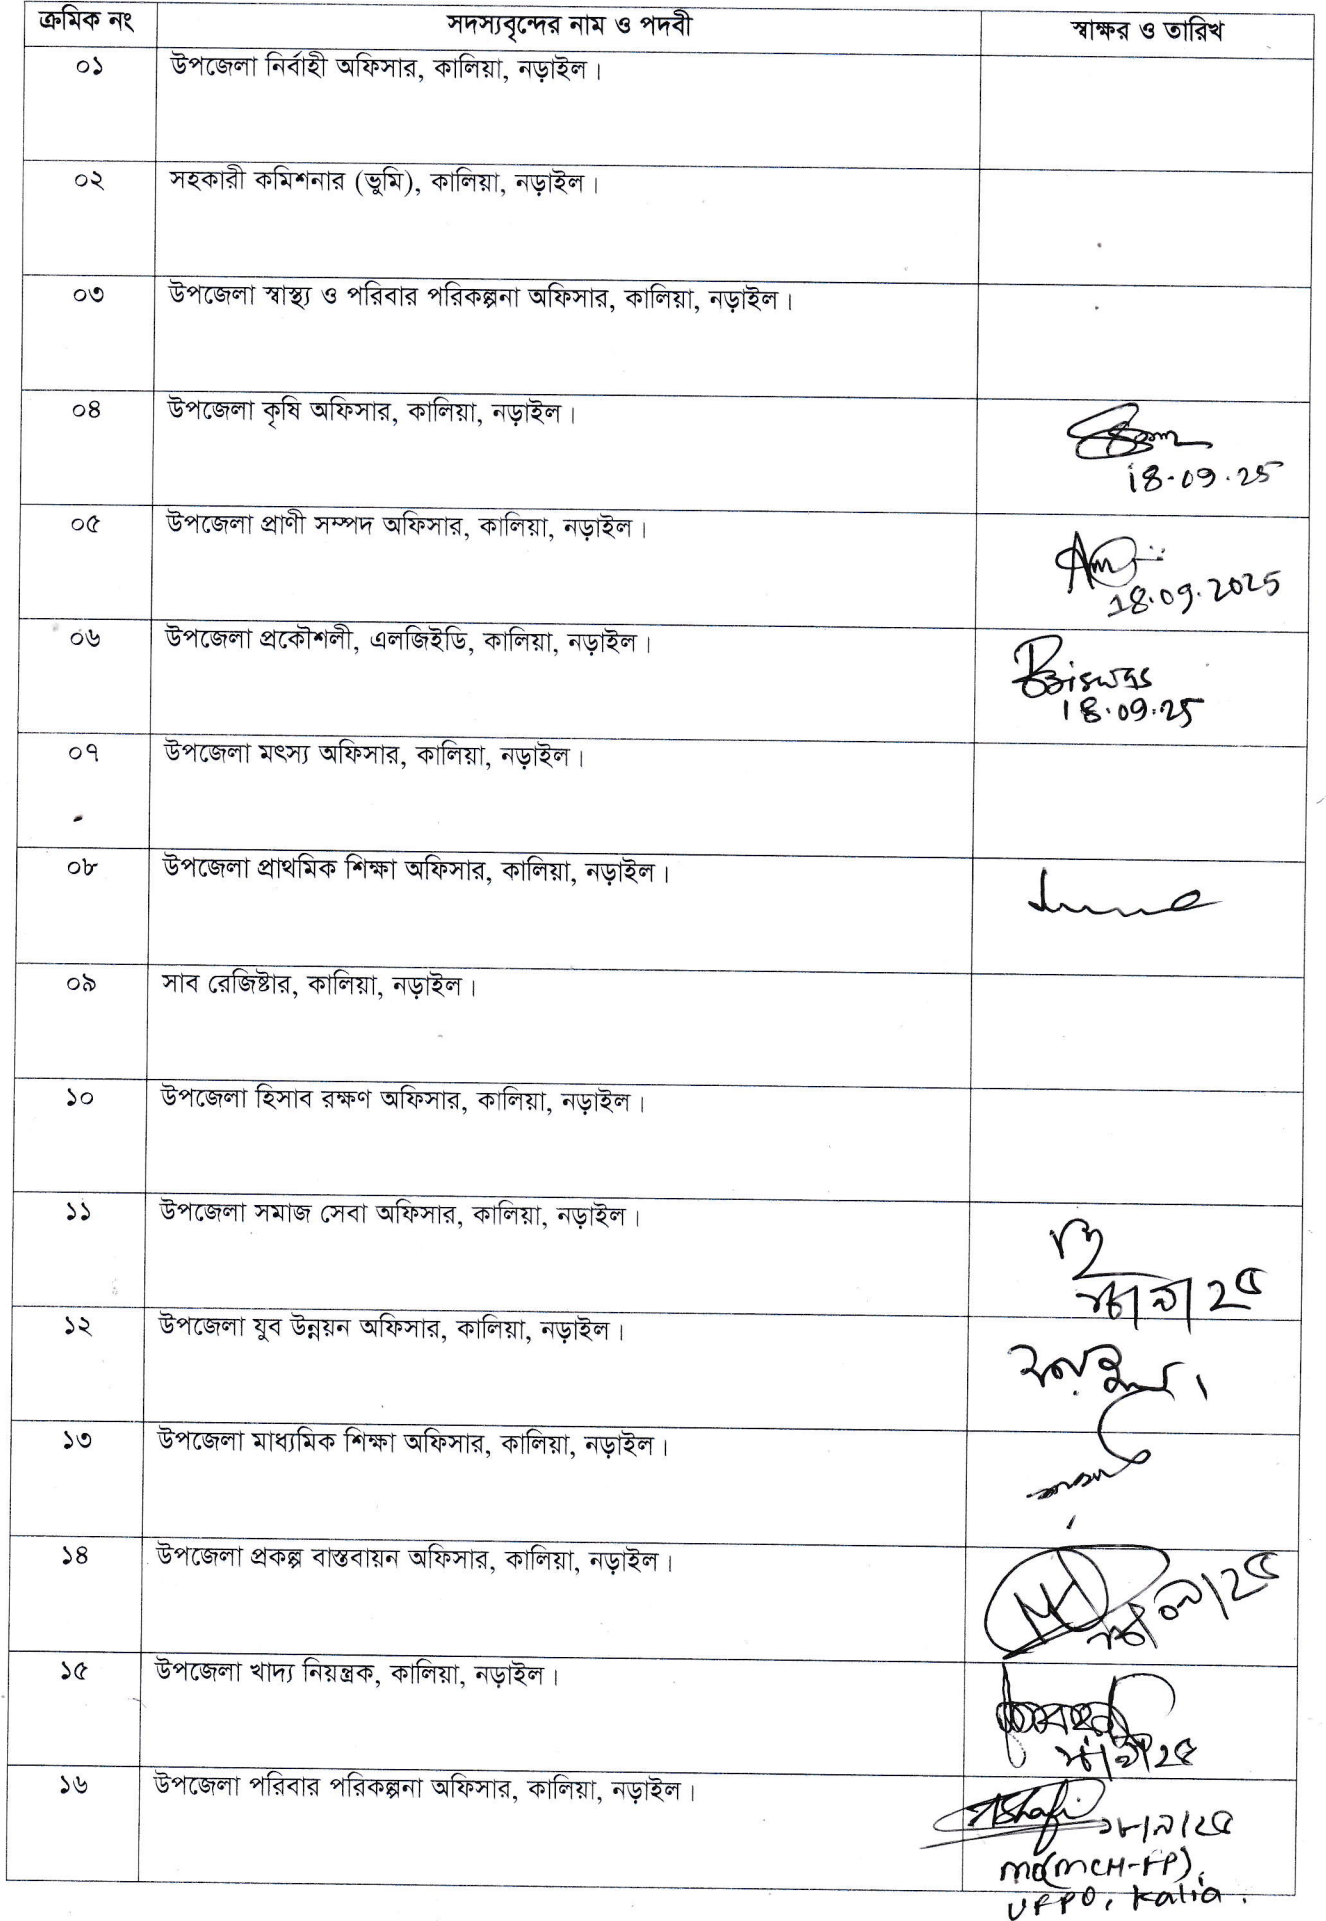 ক্রমিক নং সদস্যবৃন্দের নাম ও পদবী স্বাক্ষর ও তারিখ
০১ উপজেলা নির্বাহী অফিসার, কালিয়া, নড়াইল।
০২ সহকারী কমিশনার (ভূমি), কালিয়া, নড়াইল।
০৩ উপজেলা স্বাস্থ্য ও পরিবার পরিকল্পনা অফিসার, কালিয়া, নড়াইল।
০৪ উপজেলা কৃষি অফিসার, কালিয়া, নড়াইল।
18.09.25
০৫ উপজেলা প্রাণী সম্পদ অফিসার, কালিয়া, নড়াইল।
18.09.2025
০৬ উপজেলা প্রকৌশলী, এলজিইডি, কালিয়া, নড়াইল।
Biswas
18.09.25
০৭ উপজেলা মৎস্য অফিসার, কালিয়া, নড়াইল।
০৮ উপজেলা প্রাথমিক শিক্ষা অফিসার, কালিয়া, নড়াইল।
০৯ সাব রেজিষ্টার, কালিয়া, নড়াইল।
১০ উপজেলা হিসাব রক্ষণ অফিসার, কালিয়া, নড়াইল।
১১ উপজেলা সমাজ সেবা অফিসার, কালিয়া, নড়াইল।
১৮/৯/২৫
১২ উপজেলা যুব উন্নয়ন অফিসার, কালিয়া, নড়াইল।
১৩ উপজেলা মাধ্যমিক শিক্ষা অফিসার, কালিয়া, নড়াইল।
১৪ উপজেলা প্রকল্প বাস্তবায়ন অফিসার, কালিয়া, নড়াইল।
১৮/০৯/২৫
১৫ উপজেলা খাদ্য নিয়ন্ত্রক, কালিয়া, নড়াইল।
১৮/৯/২৫
১৬ উপজেলা পরিবার পরিকল্পনা অফিসার, কালিয়া, নড়াইল।
১৮/৯/২৫
MO(MCH-FP),
UFPO, Kalia.